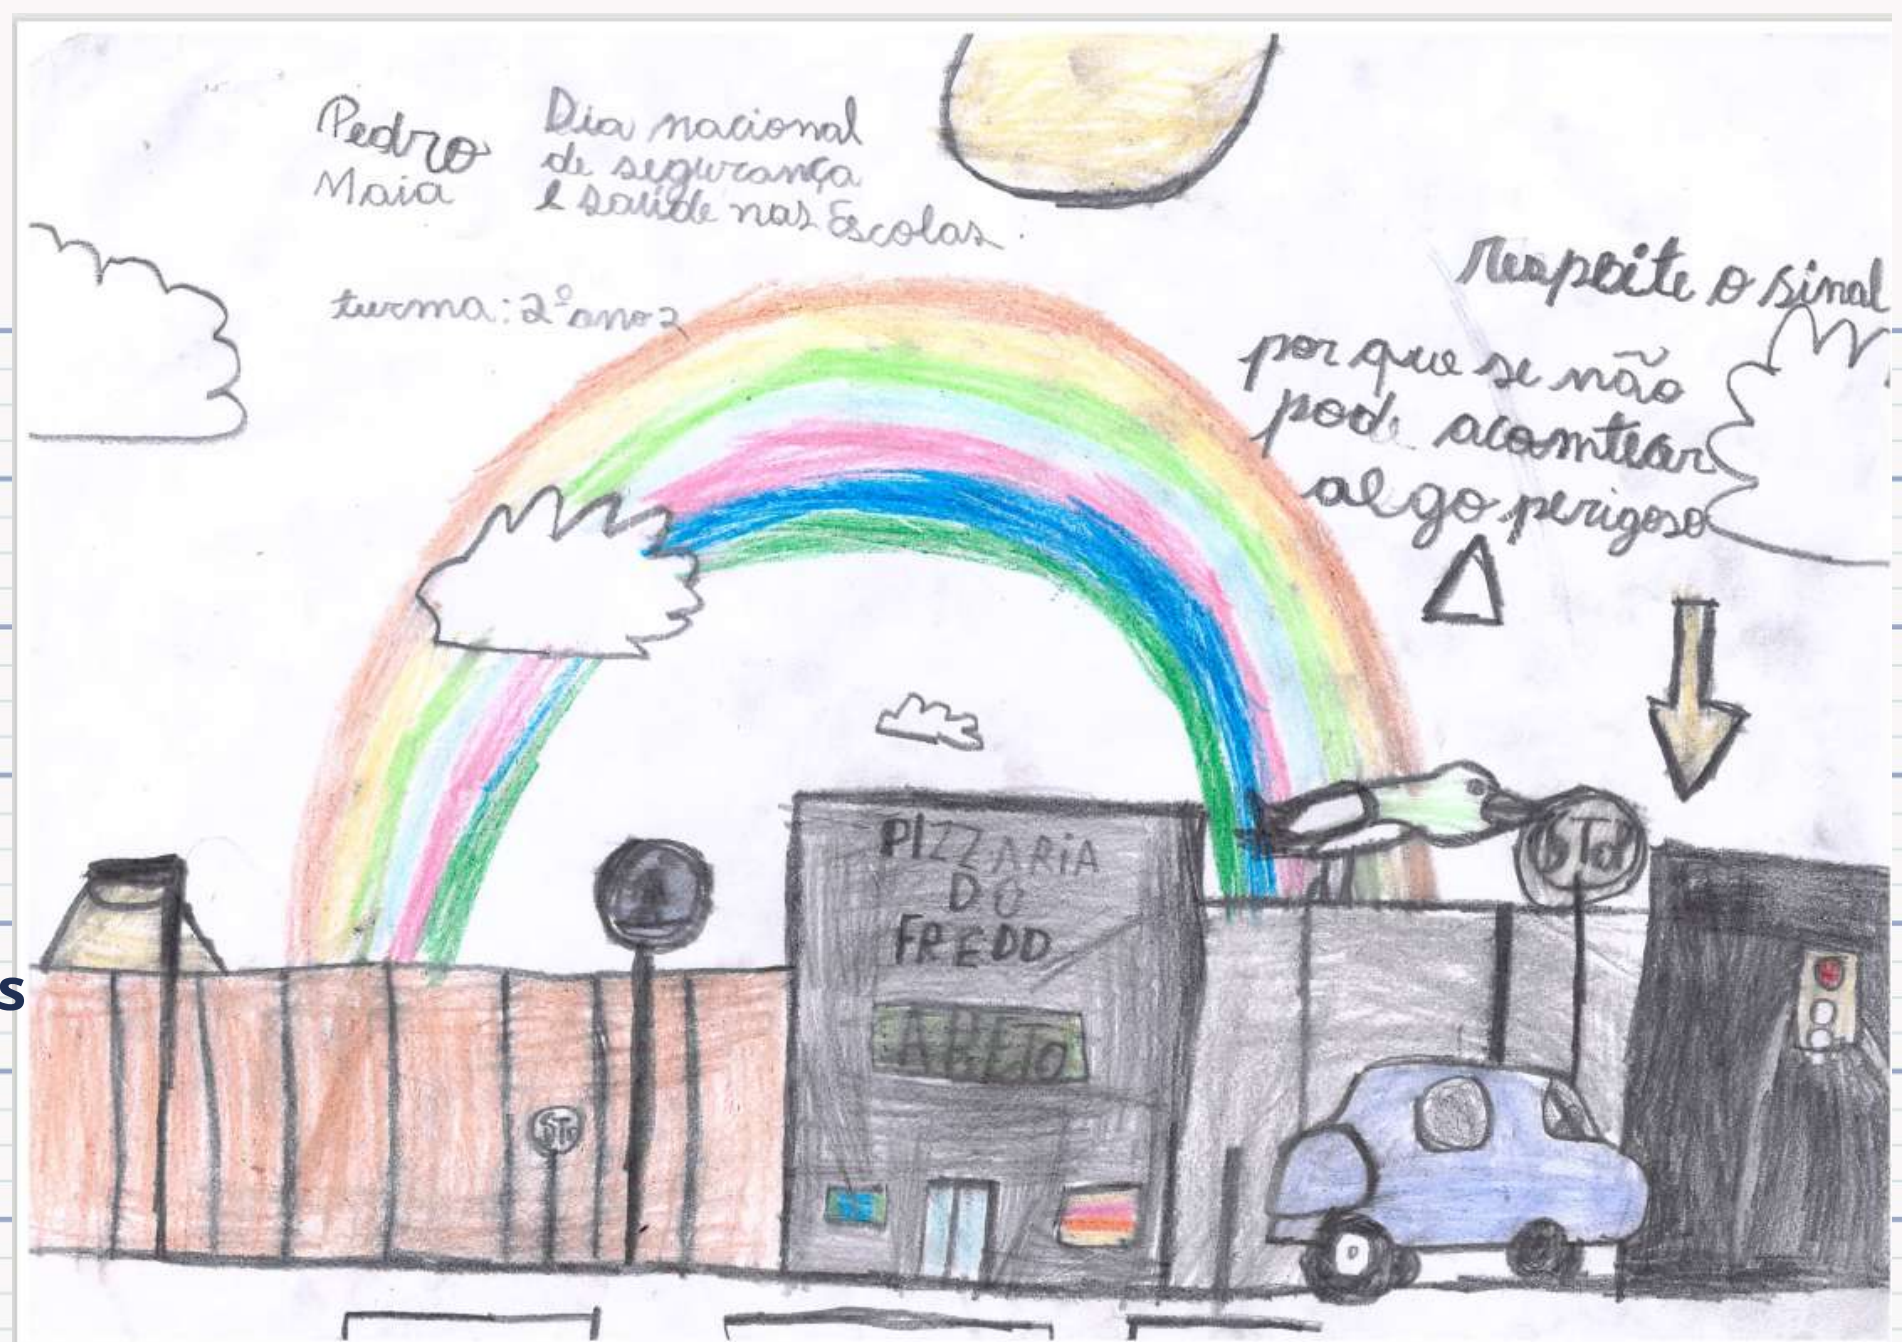 Pedro
Maia
Dia nacional
de segurança
e saúde nas Escolas.
turma: 2º ano 2
respeite o sinal
por que se não
pode acomtecer
algo perigoso
PIZZARIA
DO
FREDD
ABETO
STO
s